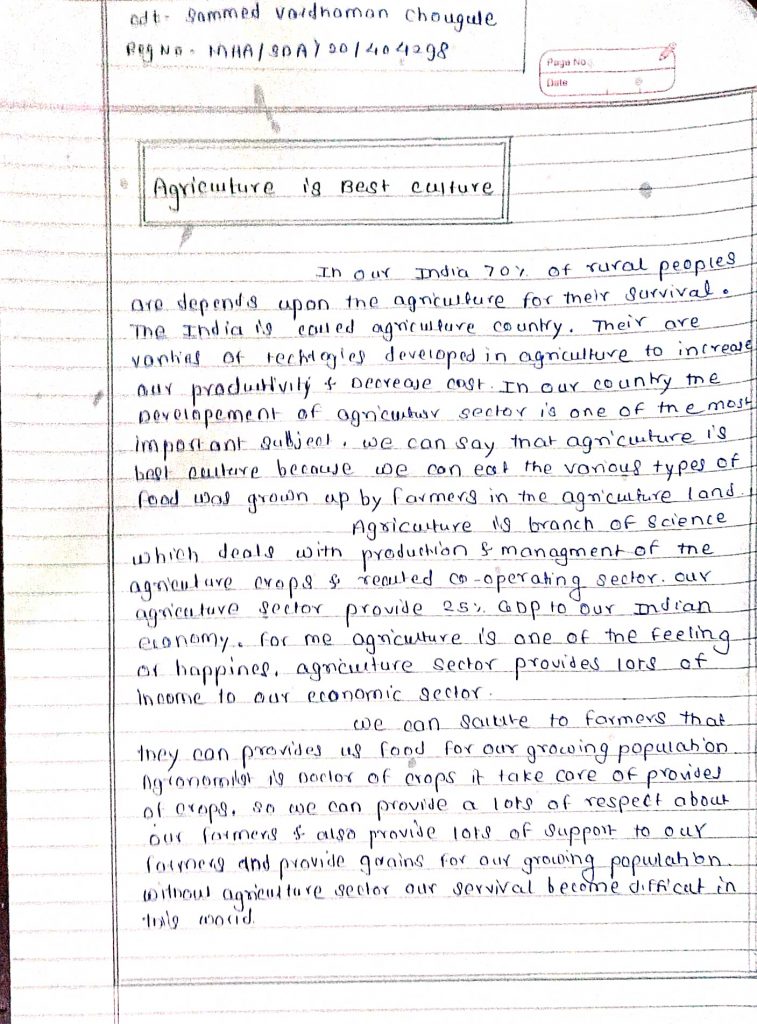 cdt- Sammed Vardhaman Chougule
Reg No - MHA/SDA/20/404298
Page No
Date
Agriculture is Best culture
In our India 70% of rural peoples
are depends upon the agriculture for their survival.
The India is called agriculture country. Their are
of developed in agriculture to increase
our productivity & Decrease cost. In our country the
Developement of agriculture sector is one of the most
important subject. we can say that agriculture is
best culture because we can eat the various types of
food was grown up by farmers in the agriculture land.
Agriculture is branch of science
which deals with production & managment of the
agriculture crops & co-operating sector. our
agriculture sector provide 25% GDP to our Indian
economy. for me agriculture is one of the feeling
of happines. agriculture sector provides lots of
income to our economic sector.
we can salute to farmers that
they can provides us food for our growing population.
is Doctor of crops it take care of provides
of crops. so we can provide a lots of respect about
our farmers & also provide lots of support to our
farmers and provide grains for our growing population.
without agriculture sector our servival become difficult in
this world.